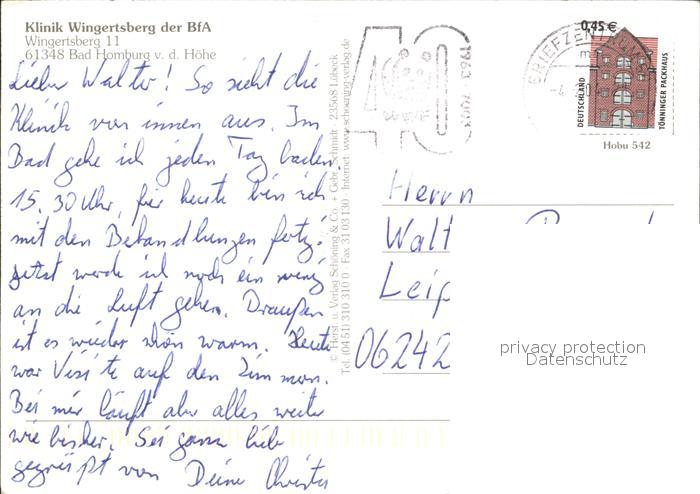 Klinik Wingertsberg der BfA
Wingertsberg 11
61348 Bad Homburg v. d. Höhe
Lieber Walter! So sieht die
Klinik von innen aus. Im
Bad gehe ich jeden Tag baden.
15.30 Uhr, für heute bin ich
mit den Behandlungen fertig.
Jetzt werde ich noch ein wenig
an die Luft gehen. Draußen
ist es wieder schön warm. Heute
war Visite auf den Zimmern.
Bei mir läuft aber alles weiter
wie bisher. Sei ganz lieb
gegrüßt von Deine Christa
© Herst. u. Verlag Schöning & Co. + Gebr. Schmidt · 23508 Lübeck
Tel. (04 51) 310 310 0 · Fax 31 03 130 · Internet www.schoening-verlag.de
40
1963
BRIEFZENTRUM
0,45 €
DEUTSCHLAND
TÖNNINGER PACKHAUS
Hobu 542
Herrn
Walt
Leip
06242
privacy protection
Datenschutz